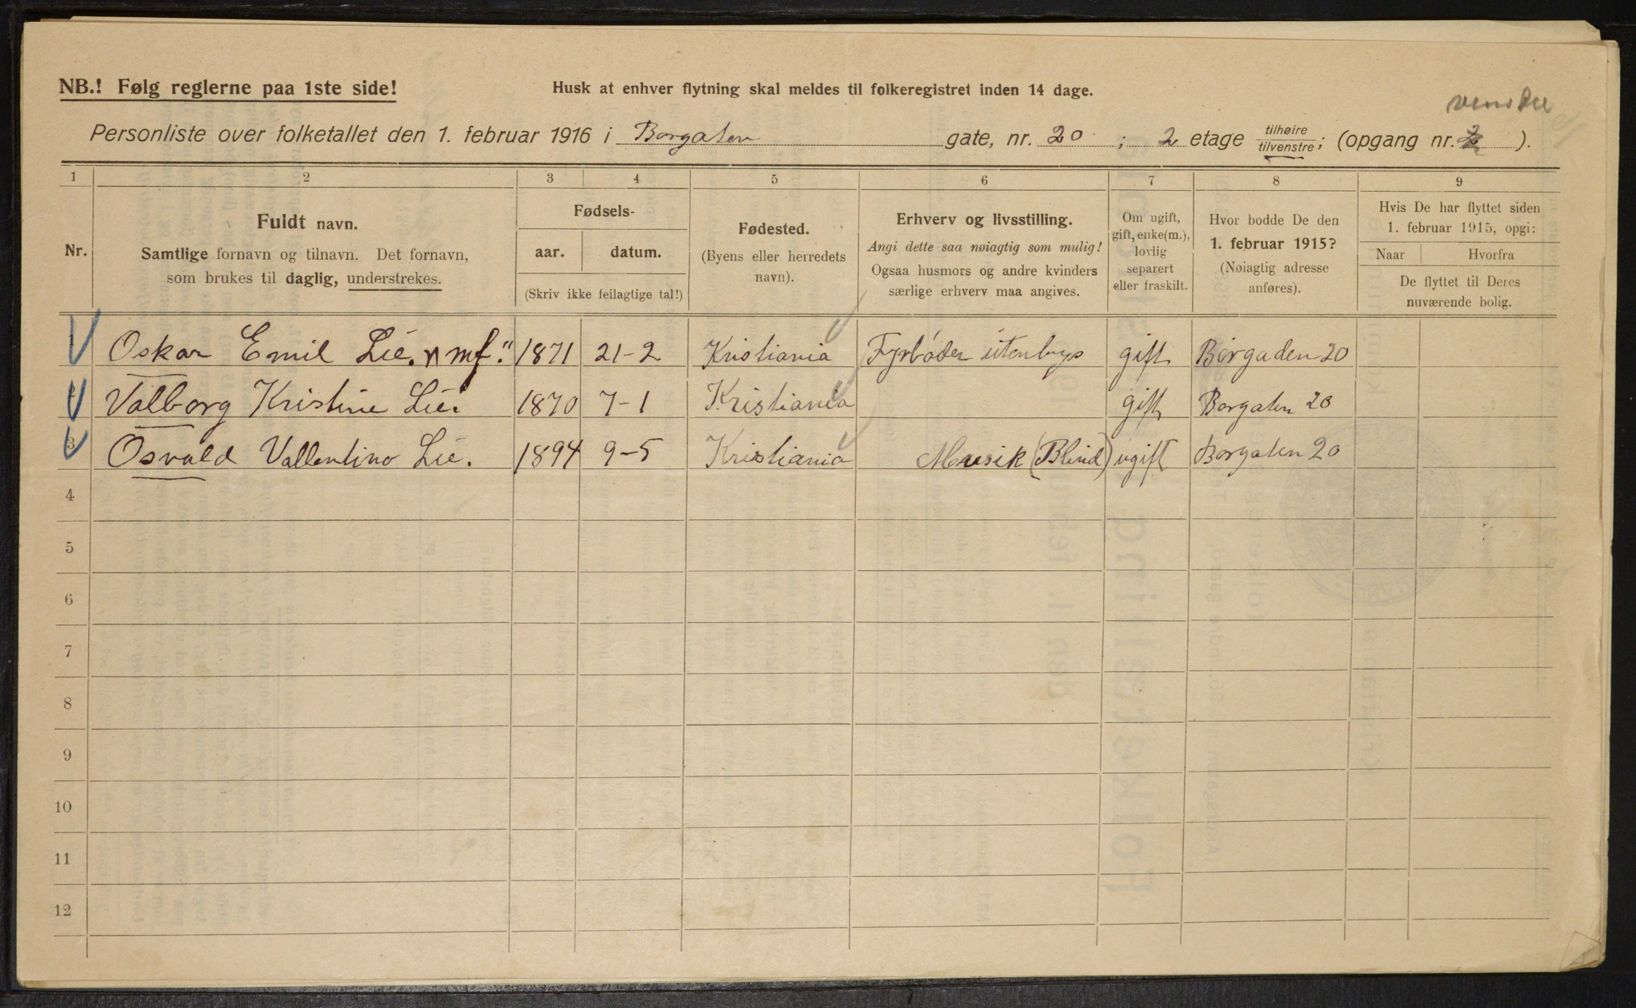 NB.! Følg reglerne paa 1ste side!
Husk at enhver flytning skal meldes til folkeregistret inden 14 dage.
Personliste over folketallet den 1. februar 1916 i Borgaten gate, nr. 20 ; 2 etage tilhøire tilvenstre; (opgang nr. ).
1 2 3 4 5 6 7 8 9
Nr.
Fuldt navn.
Samtlige fornavn og tilnavn. Det fornavn,
som brukes til daglig, understrekes.
Fødsels-
aar. datum.
(Skriv ikke feilagtige tal!)
Fødested.
(Byens eller herredets
navn).
Erhverv og livsstilling.
Angi dette saa nøiagtig som mulig!
Ogsaa husmors og andre kvinders
særlige erhverv maa angives.
Om ugift,
gift, enke(m.),
lovlig
separert
eller fraskilt.
Hvor bodde De den
1. februar 1915?
(Nøiagtig adresse
anføres).
Hvis De har flyttet siden
1. februar 1915, opgi:
Naar Hvorfra
De flyttet til Deres
nuværende bolig.
Oskar Emil Lie. mf. 1871 21-2 Kristiania Fyrbøder utenbys gift Borgaden 20
Valborg Kristine Lie. 1870 7-1 Kristiania gift Borgaten 20
3 Osvald Vallentino Lie. 1894 9-5 Kristiania Musik (Blind) ugift Borgaten 20
4
5
6
7
8
9
10
11
12